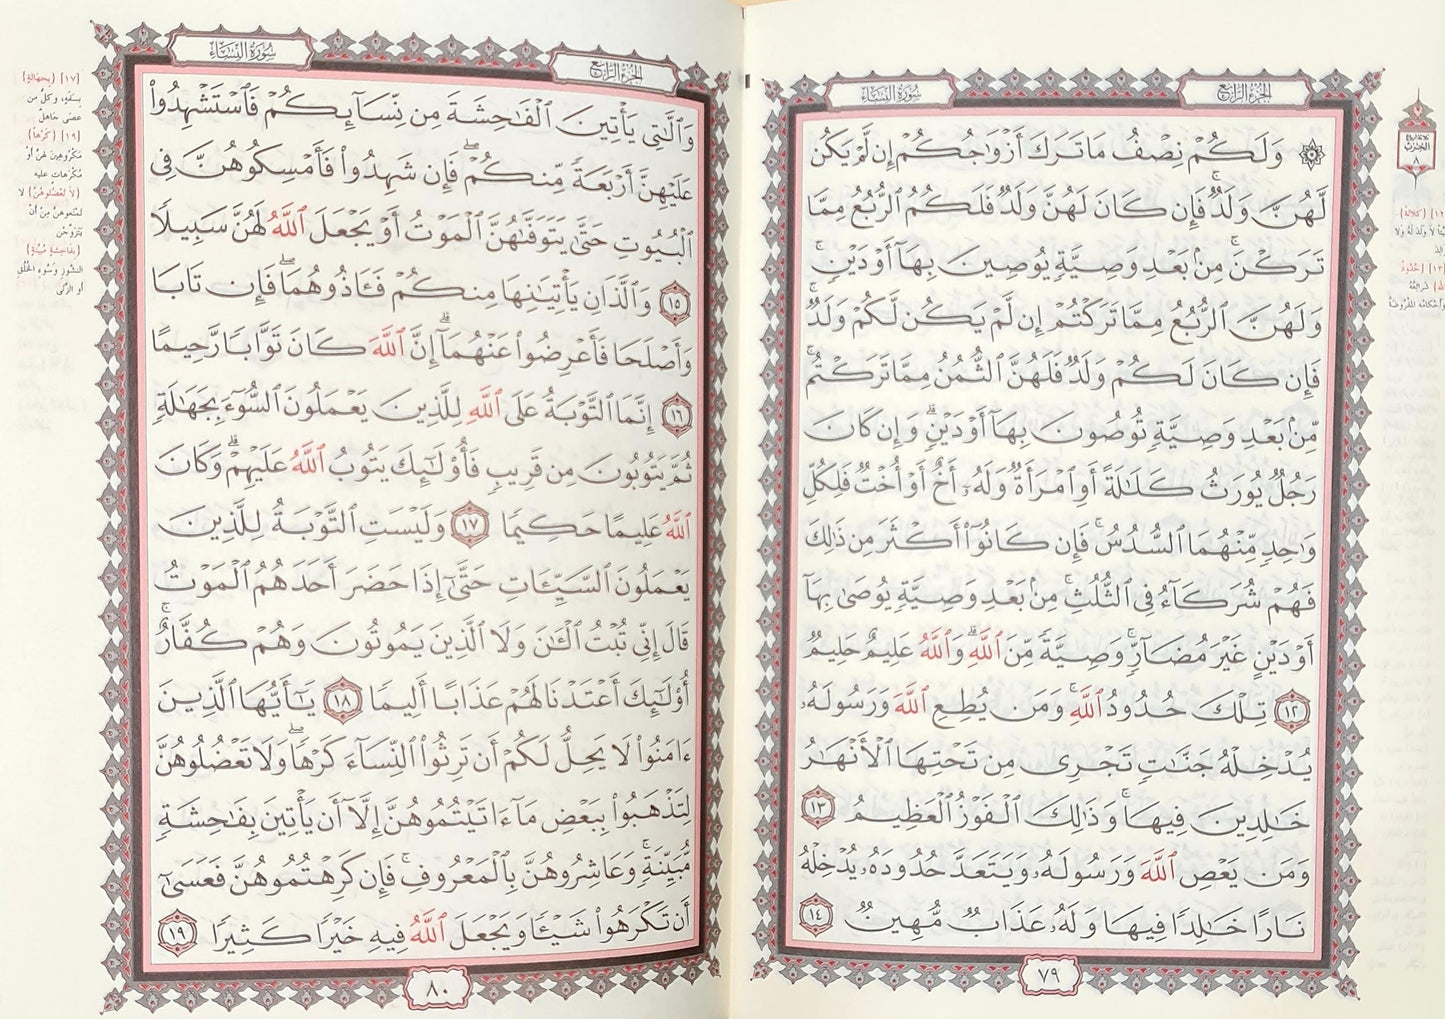 سُورَةُ النِّسَاءِ
الجُزْءُ الرَّابِعُ
۞ وَلَكُمْ نِصْفُ مَا تَرَكَ أَزْوَٰجُكُمْ إِن لَّمْ يَكُن
لَّهُنَّ وَلَدٌ ۚ فَإِن كَانَ لَهُنَّ وَلَدٌ فَلَكُمُ ٱلرُّبُعُ مِمَّا
تَرَكْنَ ۚ مِنۢ بَعْدِ وَصِيَّةٍ يُوصِينَ بِهَآ أَوْ دَيْنٍ ۚ
وَلَهُنَّ ٱلرُّبُعُ مِمَّا تَرَكْتُمْ إِن لَّمْ يَكُن لَّكُمْ وَلَدٌ ۚ
فَإِن كَانَ لَكُمْ وَلَدٌ فَلَهُنَّ ٱلثُّمُنُ مِمَّا تَرَكْتُم ۚ
مِّنۢ بَعْدِ وَصِيَّةٍ تُوصُونَ بِهَآ أَوْ دَيْنٍ ۗ وَإِن كَانَ
رَجُلٌ يُورَثُ كَلَٰلَةً أَوِ ٱمْرَأَةٌ وَلَهُۥٓ أَخٌ أَوْ أُخْتٌ فَلِكُلِّ
وَٰحِدٍ مِّنْهُمَا ٱلسُّدُسُ ۚ فَإِن كَانُوٓا۟ أَكْثَرَ مِن ذَٰلِكَ
فَهُمْ شُرَكَآءُ فِى ٱلثُّلُثِ ۚ مِنۢ بَعْدِ وَصِيَّةٍ يُوصَىٰ بِهَآ
أَوْ دَيْنٍ غَيْرَ مُضَآرٍّ ۚ وَصِيَّةً مِّنَ ٱللَّهِ ۗ وَٱللَّهُ عَلِيمٌ حَلِيمٌ
١٢ تِلْكَ حُدُودُ ٱللَّهِ ۚ وَمَن يُطِعِ ٱللَّهَ وَرَسُولَهُۥ
يُدْخِلْهُ جَنَّٰتٍ تَجْرِى مِن تَحْتِهَا ٱلْأَنْهَٰرُ
خَٰلِدِينَ فِيهَا ۚ وَذَٰلِكَ ٱلْفَوْزُ ٱلْعَظِيمُ ١٣
وَمَن يَعْصِ ٱللَّهَ وَرَسُولَهُۥ وَيَتَعَدَّ حُدُودَهُۥ يُدْخِلْهُ
نَارًا خَٰلِدًا فِيهَا وَلَهُۥ عَذَابٌ مُّهِينٌ ١٤
٧٩
سُورَةُ النِّسَاءِ
الجُزْءُ الرَّابِعُ
وَٱلَّٰتِى يَأْتِينَ ٱلْفَٰحِشَةَ مِن نِّسَآئِكُمْ فَٱسْتَشْهِدُوا۟
عَلَيْهِنَّ أَرْبَعَةً مِّنكُمْ ۖ فَإِن شَهِدُوا۟ فَأَمْسِكُوهُنَّ فِى
ٱلْبُيُوتِ حَتَّىٰ يَتَوَفَّىٰهُنَّ ٱلْمَوْتُ أَوْ يَجْعَلَ ٱللَّهُ لَهُنَّ سَبِيلًا
١٥ وَٱلَّذَانِ يَأْتِيَٰنِهَا مِنكُمْ فَـَٔاذُوهُمَا ۖ فَإِن تَابَا
وَأَصْلَحَا فَأَعْرِضُوا۟ عَنْهُمَآ ۗ إِنَّ ٱللَّهَ كَانَ تَوَّابًا رَّحِيمًا
١٦ إِنَّمَا ٱلتَّوْبَةُ عَلَى ٱللَّهِ لِلَّذِينَ يَعْمَلُونَ ٱلسُّوٓءَ بِجَهَٰلَةٍ
ثُمَّ يَتُوبُونَ مِن قَرِيبٍ فَأُو۟لَٰٓئِكَ يَتُوبُ ٱللَّهُ عَلَيْهِمْ ۗ وَكَانَ
ٱللَّهُ عَلِيمًا حَكِيمًا ١٧ وَلَيْسَتِ ٱلتَّوْبَةُ لِلَّذِينَ
يَعْمَلُونَ ٱلسَّيِّـَٔاتِ حَتَّىٰٓ إِذَا حَضَرَ أَحَدَهُمُ ٱلْمَوْتُ
قَالَ إِنِّى تُبْتُ ٱلْـَٰٔنَ وَلَا ٱلَّذِينَ يَمُوتُونَ وَهُمْ كُفَّارٌ ۚ
أُو۟لَٰٓئِكَ أَعْتَدْنَا لَهُمْ عَذَابًا أَلِيمًا ١٨ يَٰٓأَيُّهَا ٱلَّذِينَ
ءَامَنُوا۟ لَا يَحِلُّ لَكُمْ أَن تَرِثُوا۟ ٱلنِّسَآءَ كَرْهًا ۖ وَلَا تَعْضُلُوهُنَّ
لِتَذْهَبُوا۟ بِبَعْضِ مَآ ءَاتَيْتُمُوهُنَّ إِلَّآ أَن يَأْتِينَ بِفَٰحِشَةٍ
مُّبَيِّنَةٍ ۚ وَعَاشِرُوهُنَّ بِٱلْمَعْرُوفِ ۚ فَإِن كَرِهْتُمُوهُنَّ فَعَسَىٰٓ
أَن تَكْرَهُوا۟ شَيْـًٔا وَيَجْعَلَ ٱللَّهُ فِيهِ خَيْرًا كَثِيرًا ١٩
٨٠
[١٧] (بِجَهَالَةٍ)
بِسَفَهٍ، وَكُلُّ مَن
عَصَى جَاهِلٌ
[١٩] (كَرْهاً)
مَكْرُوهِينَ لَهُنَّ أَوْ
مُكْرَهَاتٍ عليه
(لا تَعْضُلُوهُنَّ) لا
تَمْنَعُوهُنَّ مِنْ أَنْ
يَتَزَوَّجْنَ
(بِفَاحِشَةٍ مُبَيِّنَةٍ)
النشوزِ وَسُوءِ الْخُلُقِ
أو الزِّنَى